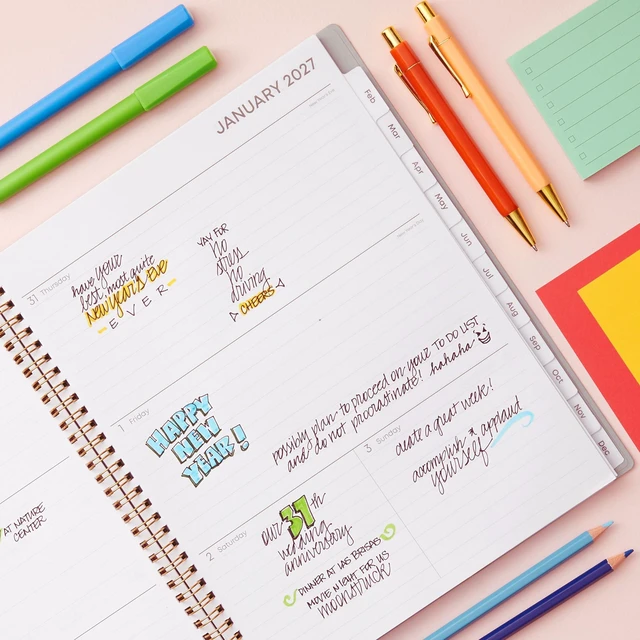 JANUARY 2027
31 Thursday
have your
best, most quite
New Year's Eve
- E V E R -
YAY FOR
no
stress
no
driving
CHEERS
1 Friday
HAPPY
NEW
YEAR!
possibly plan to proceed on your TO DO LIST
and do not procrastinate! hahaha
2 Saturday
our 37th
wedding
anniversary
DINNER AT LAS BRISAS
MOVIE NIGHT FOR US
moonstruck
3 Sunday
create a great week!
accomplish & applaud
yourself
AT NATURE
CENTER
Feb
Mar
Apr
May
Jun
Jul
Aug
Sep
Oct
Nov
Dec